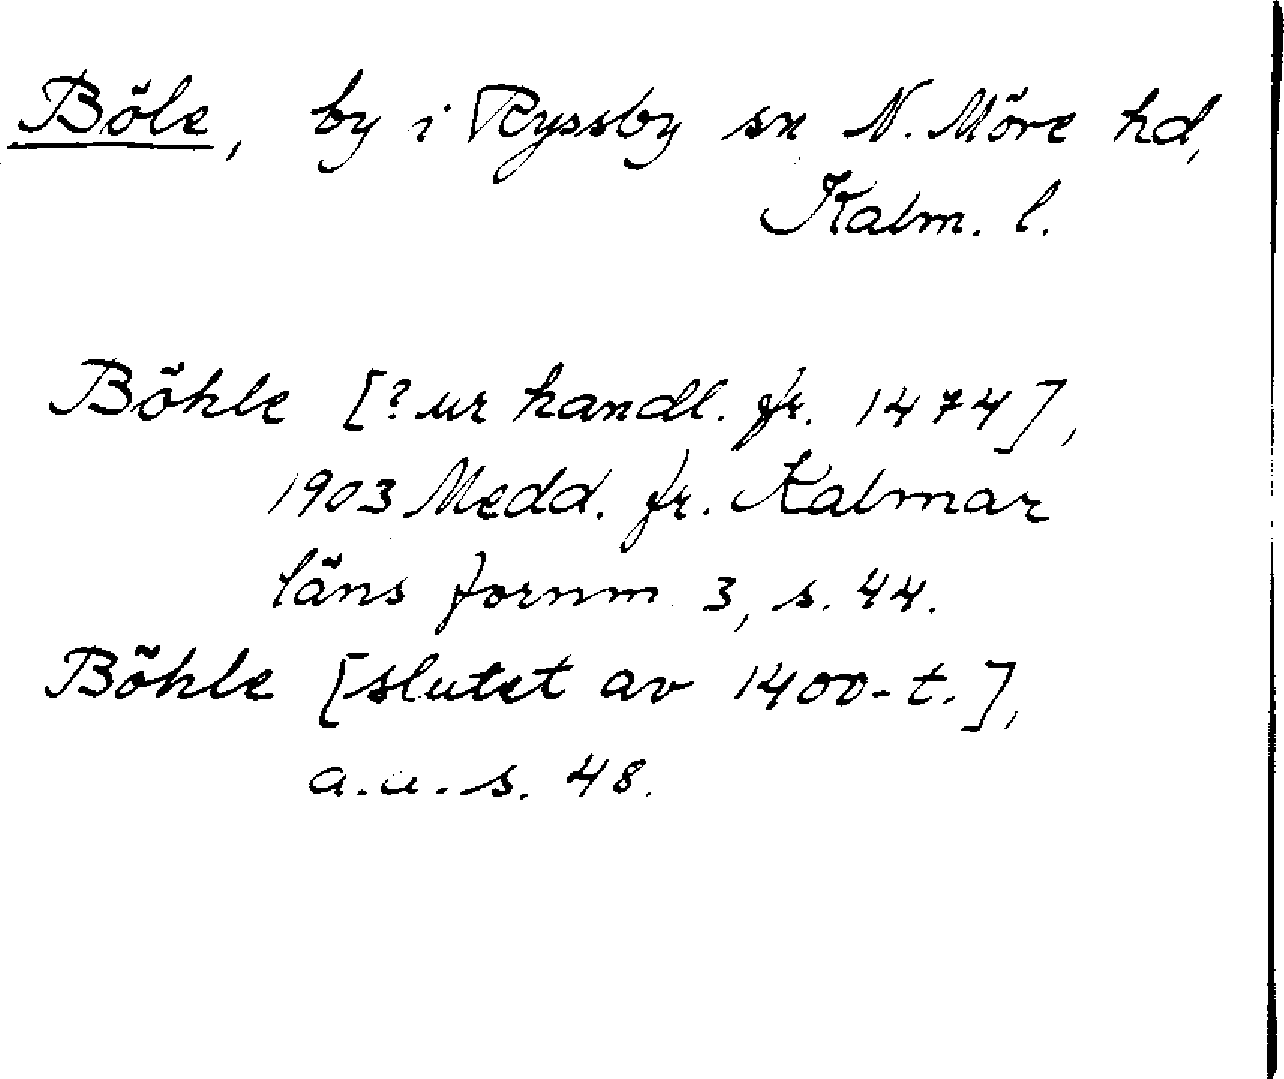 Böle, by i Ryssby sn N. Möre hd,
Kalm. l.
Böhle [? ur handl. fr. 1474],
1903 Medd. fr. Kalmar
läns fornm 3, s. 44.
Böhle [slutet av 1400-t.],
a.a. s. 48.